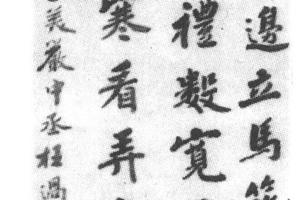 邊立馬簇
禮數寬
寒看弄
美嚴中丞枉過